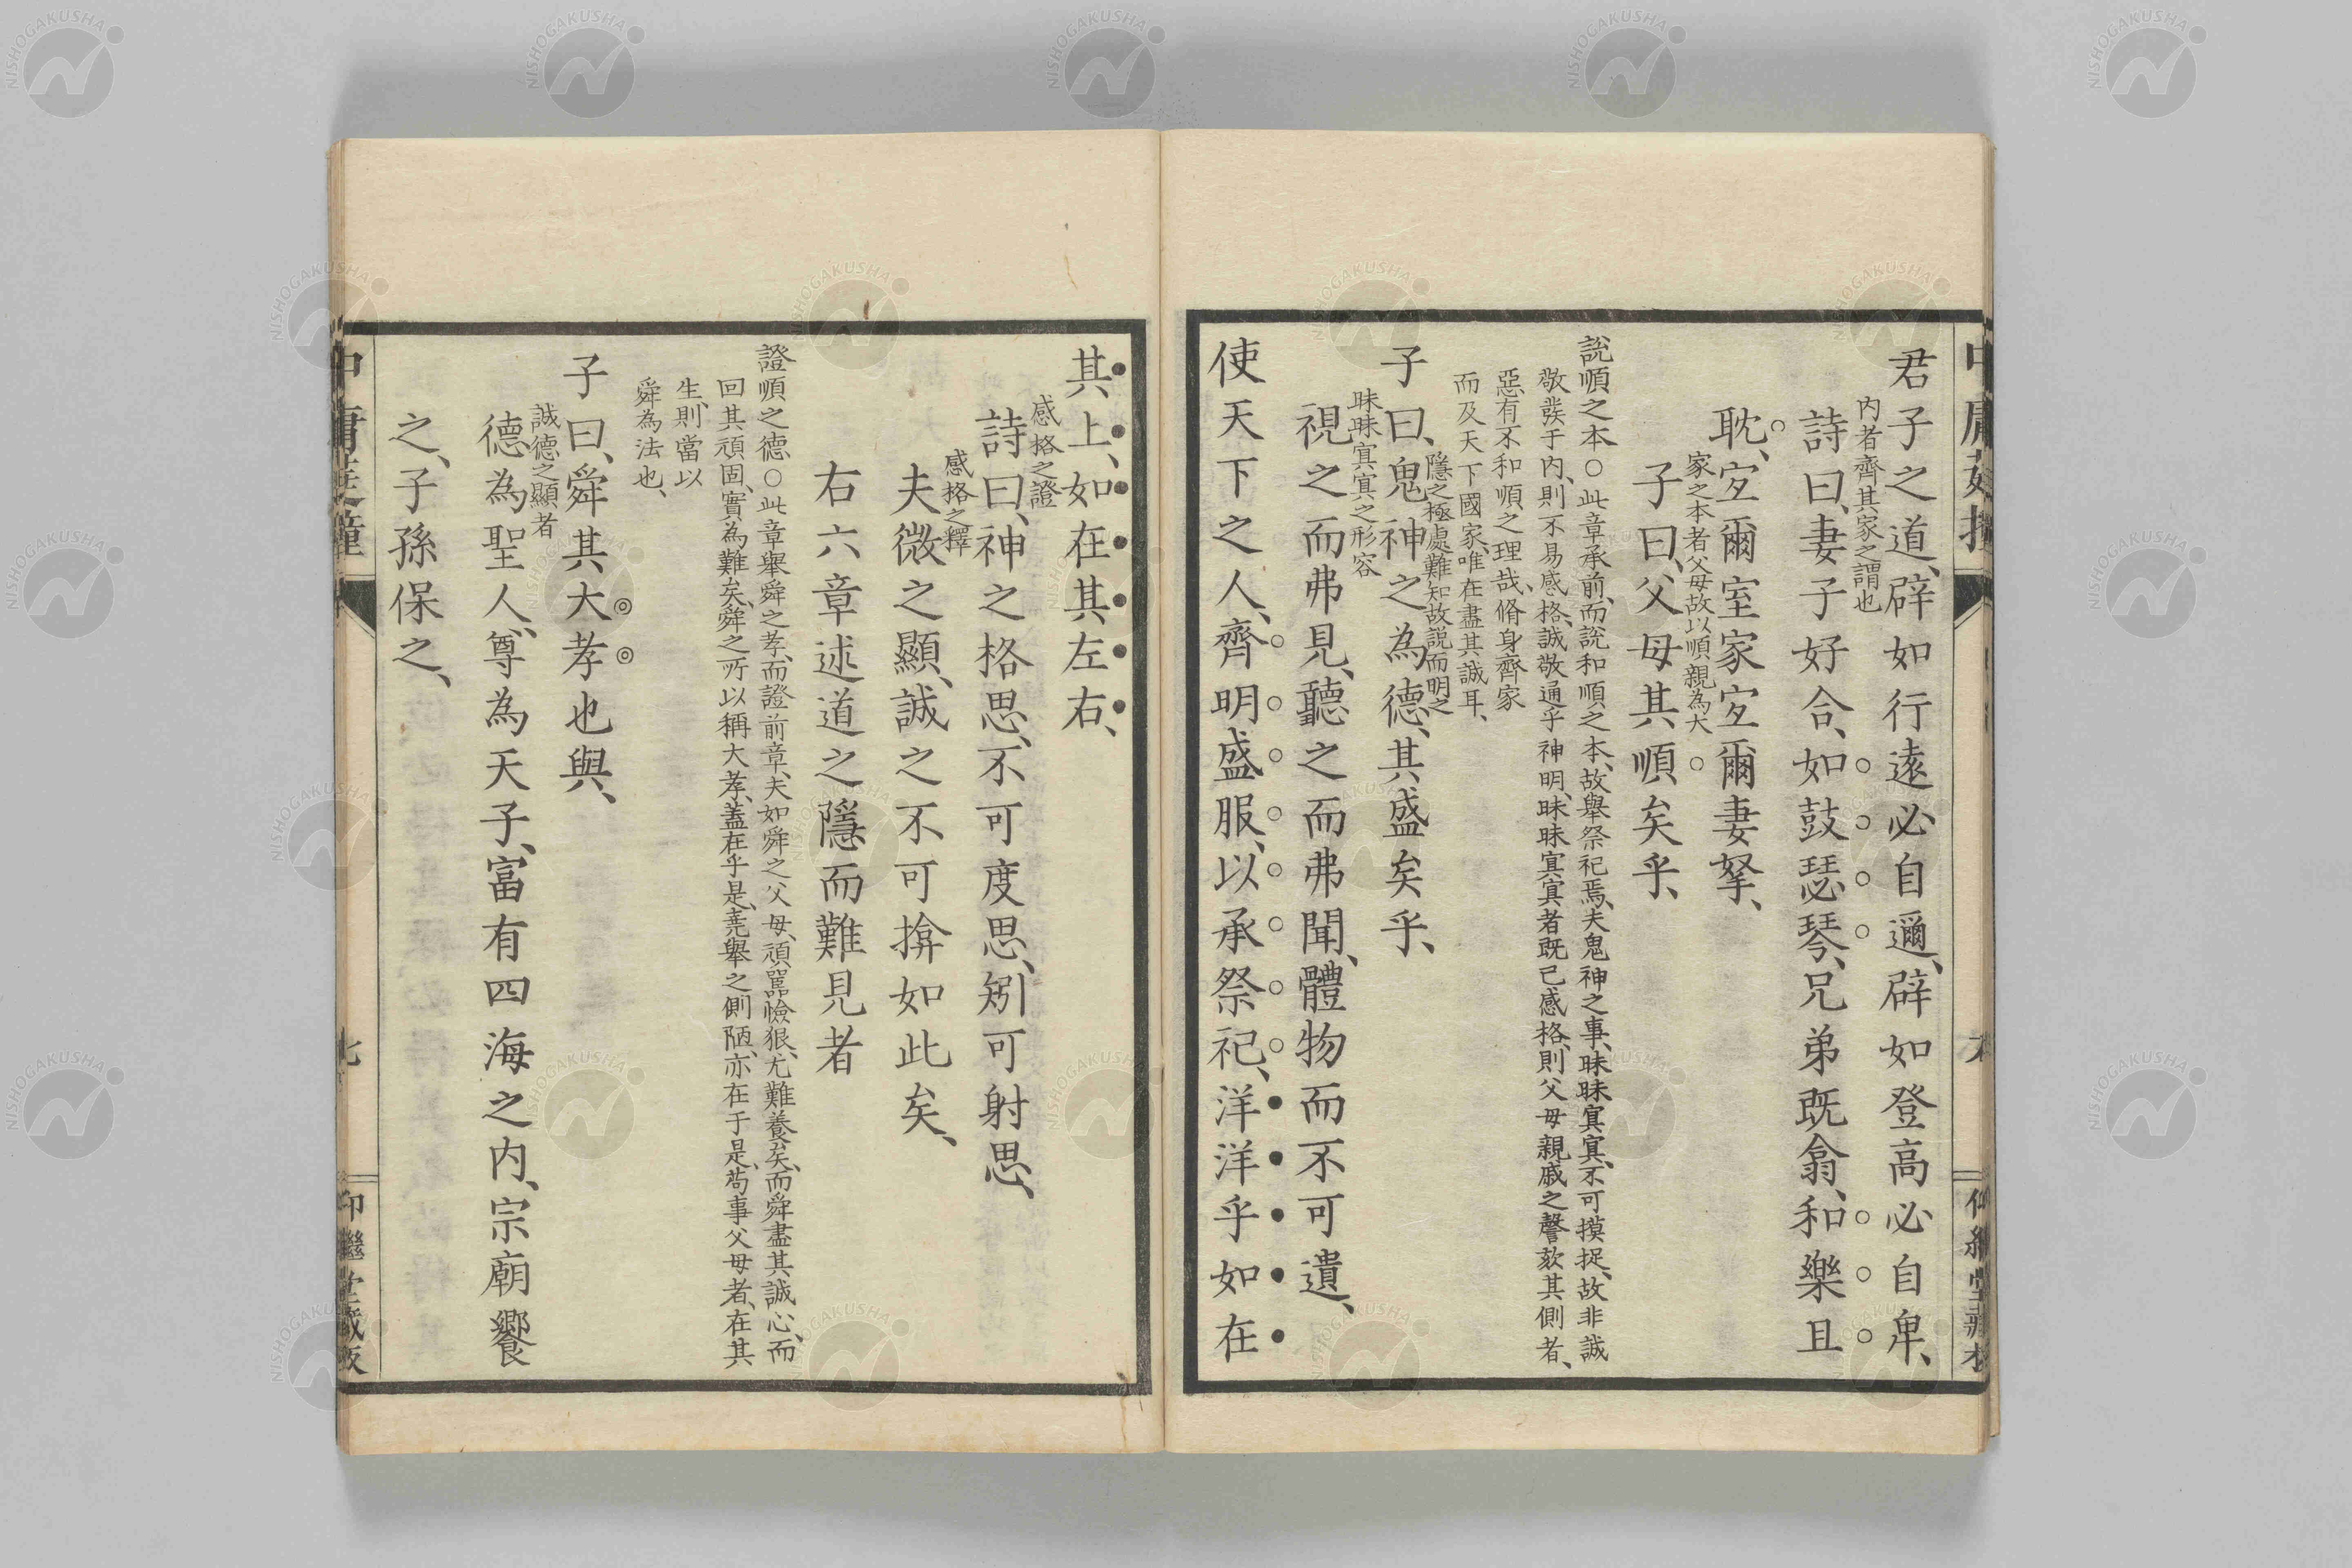 君子之道、辟如行遠必自邇、辟如登高必自卑、
內者齊其家之謂也
詩曰、妻子好合、如鼓瑟琴、兄弟既翕、和樂且
耽、宐爾室家宐爾妻孥、
家之本者父母故以順親為大
子曰、父母其順矣乎、
說順之本○此章承前、而說和順之本、故舉祭祀焉、夫鬼神之事、昧昧冥冥、不可摸捉、故非誠
敬發于內、則不易感格、誠敬通乎神明、昧昧冥冥者既已感格、則父母親戚之謦欬其側者、
惡有不和順之理哉、脩身齊家
而及天下國家、唯在盡其誠耳、
子曰、鬼神之為德、其盛矣乎、
隱之極處難知故説而明之
視之而弗見、聽之而弗聞、體物而不可遺、
昧昧冥冥之形容
使天下之人、齊明盛服、以承祭祀、洋洋乎如在
其上、如在其左右、
感格之證
詩曰、神之格思、不可度思、矧可射思、
感格之釋
夫微之顯、誠之不可揜如此矣、
右六章述道之隱而難見者
證順之德○此章舉舜之孝、而證前章、夫如舜之父母、頑嚚憸狠、尤難養矣、而舜盡其誠心、而
回其頑固、實為難矣、舜之所以稱大孝、蓋在乎是、堯舉之側陋、亦在于是、苟事父母者、在其
生、則當以
舜為法也、
子曰、舜其大孝也與、
誠德之顯者
德為聖人、尊為天子、富有四海之內、宗廟饗
之、子孫保之、
NISHOGAKUSHA